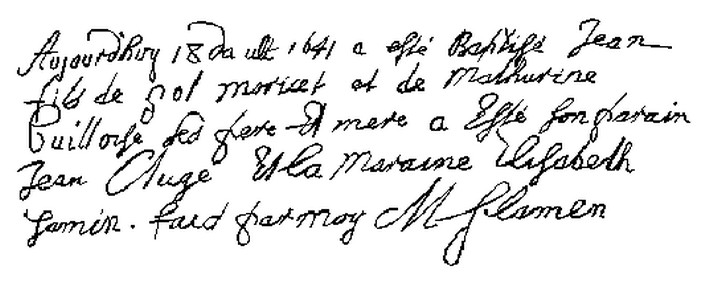 Aujourdhuy 18 da ult 1641 a esté Baptisé Jean
fils de pol moricet et de Mathurine
Guilloise ses pere Et mere a Esté son parain
Jean Augé Et la Maraine Elisabeth
Jamin. faict par moy M flamen